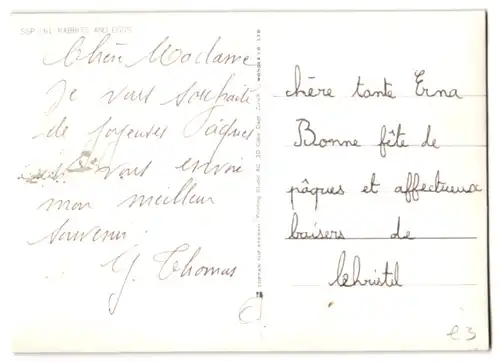 SSP 161 RABBITS AND EGGS
Chère Madame
Je vous souhaite
de joyeuses Pâques
et vous envoie
mon meilleur
souvenir.
Y. Thomas
chère tante Erna
Bonne fête de
pâques et affectueux
baisers de
Christel